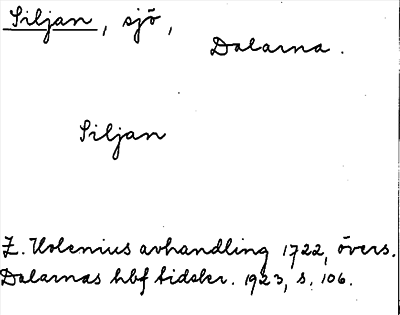 Siljan, sjö,
Dalarna.
Siljan
Z. Holenius avhandling 1722, övers.
Dalarnas hbf tidskr. 1923, s. 106.